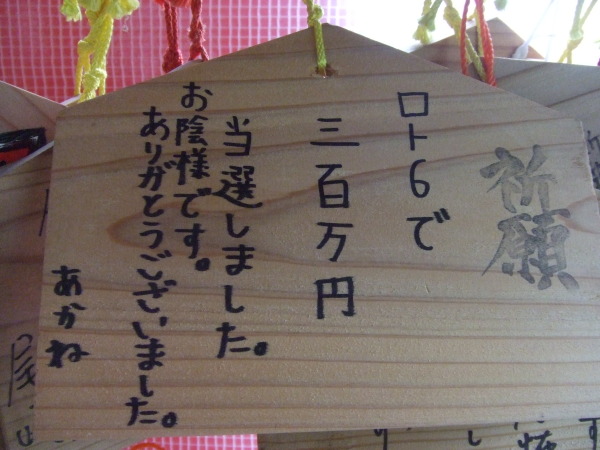 祈願
ロト6で
三百万円
当選しました。
お陰様です。
ありがとうございました。
あかね